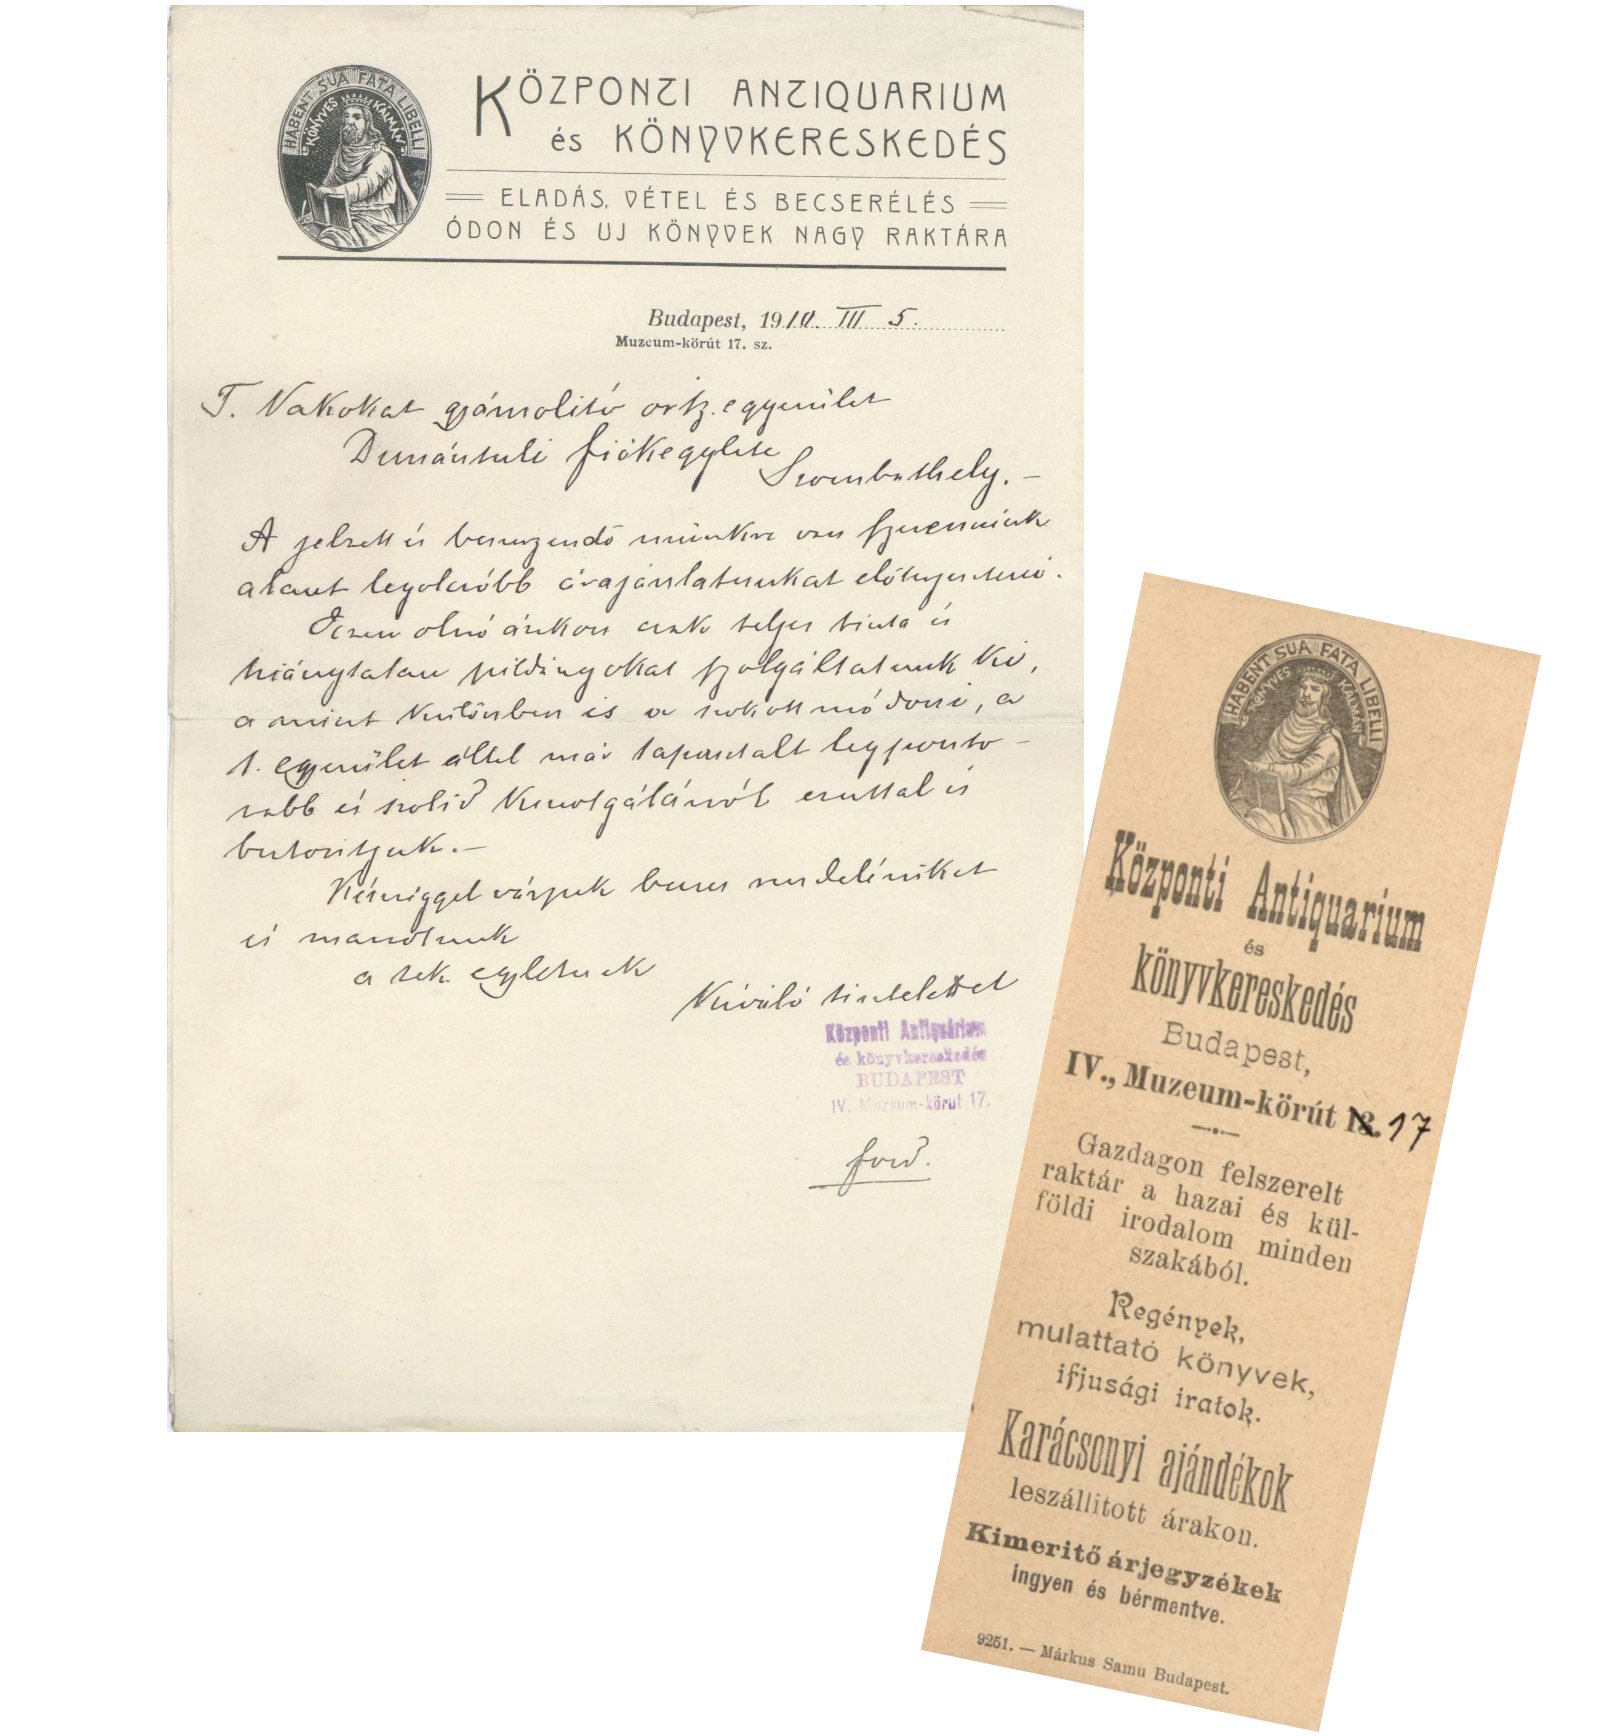 HABENT SUA FATA LIBELLI
KÖNYVES KÁLMÁN
KÖZPONTI ANTIQUARIUM
és KÖNYVKERESKEDÉS
ELADÁS, VÉTEL ÉS BECSERÉLÉS
ÓDON ÉS UJ KÖNYVEK NAGY RAKTÁRA
Budapest, 1910. III 5.
Muzeum-körút 17. sz.
T. Vakokat gyámolító orsz. egyesület
Dunántuli fiókegylete
Szombathely. —
A jelzett és beszerzendő művekre van szerencsénk
alant legolcsóbb árajánlatunkat előterjeszteni.
Ezen olcsó árakon csak teljes tiszta és
hiánytalan példányokat szolgáltatunk ki,
a mint különben is a szokott módoni, a
t. egyesület által már tapasztalt legponto-
sabb és szolid kiszolgálásról ezuttal is
biztositjuk. —
Készséggel várjuk becses rendelésüket
és maradtunk
a tek. egyletnek
Kiváló tisztelettel
Központi Antiquárium
és könyvkereskedés
BUDAPEST
IV. Muzeum-körut 17.
ford.
HABENT SUA FATA LIBELLI
KÖNYVES KÁLMÁN
Központi Antiquarium
és
könyvkereskedés
Budapest,
IV., Muzeum-körút 13. 17
Gazdagon felszerelt
raktár a hazai és kül-
földi irodalom minden
szakából.
Regények,
mulattató könyvek,
ifjusági iratok.
Karácsonyi ajándékok
leszállitott árakon.
Kimeritő árjegyzékek
ingyen és bérmentve.
9251. — Márkus Samu Budapest.